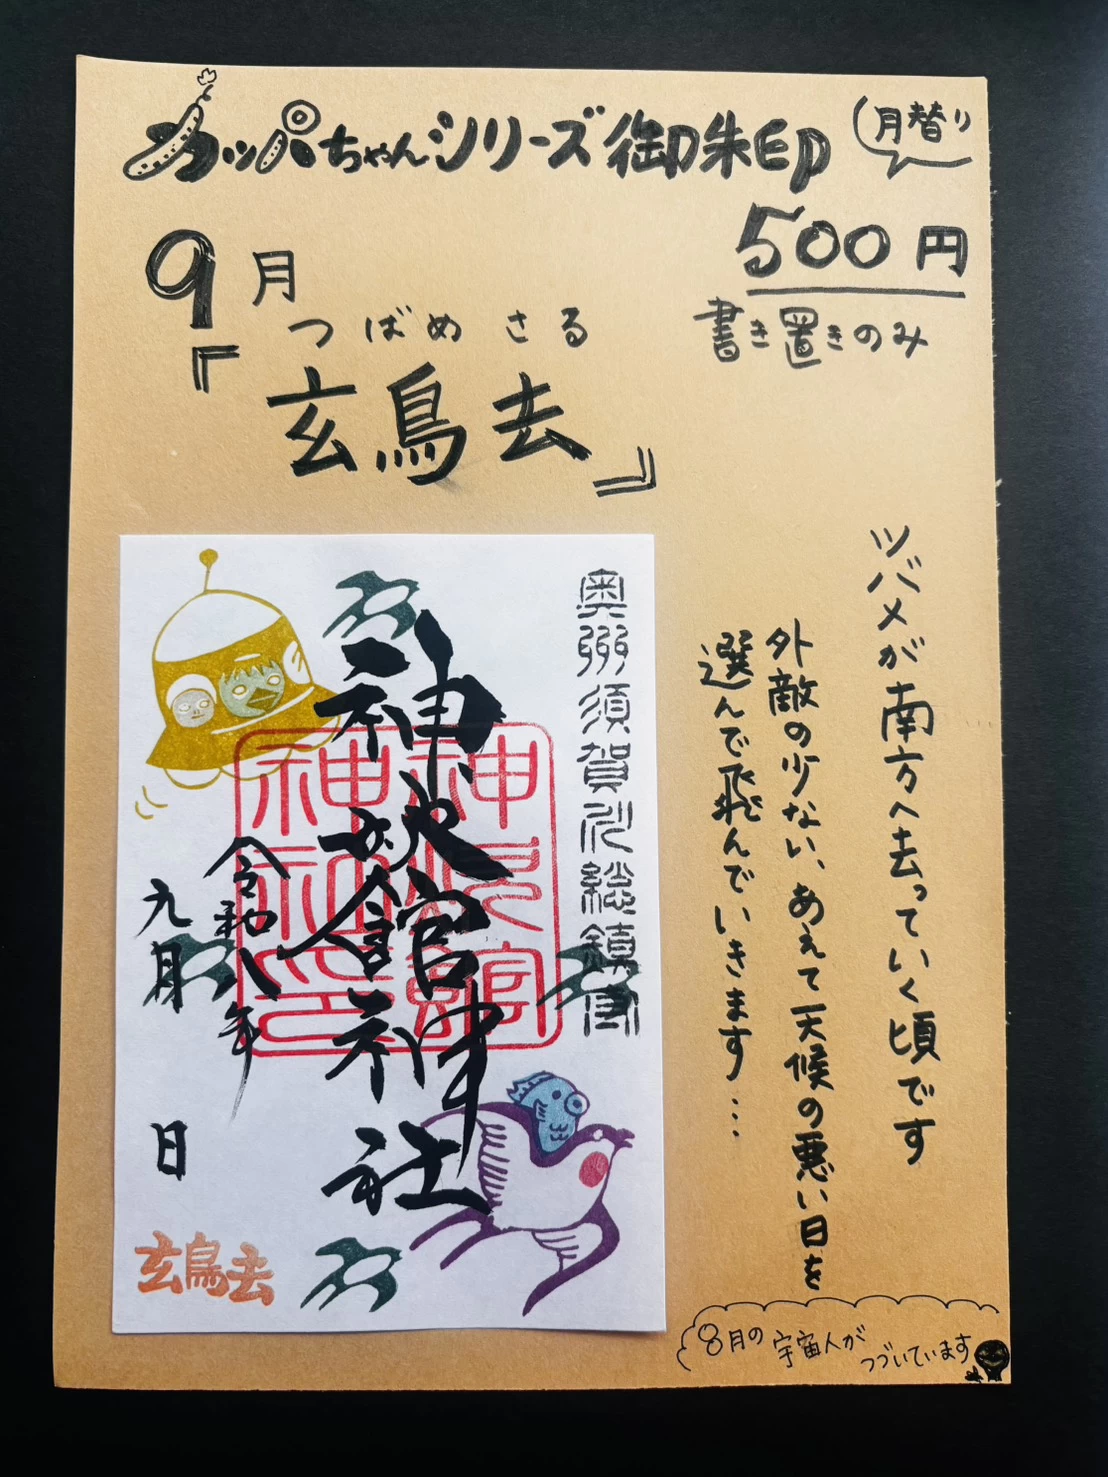 カッパちゃんシリーズ御朱印
月替り
500円
書き置きのみ
9月
つばめさる
『玄鳥去』
ツバメが南方へ去っていく頃です
外敵の少ない、あえて天候の悪い日を
選んで飛んでいきます…
奥州須賀川総鎮守
神炊館神社
令和八年
九月
日
玄鳥去
8月の宇宙人が
つづいています